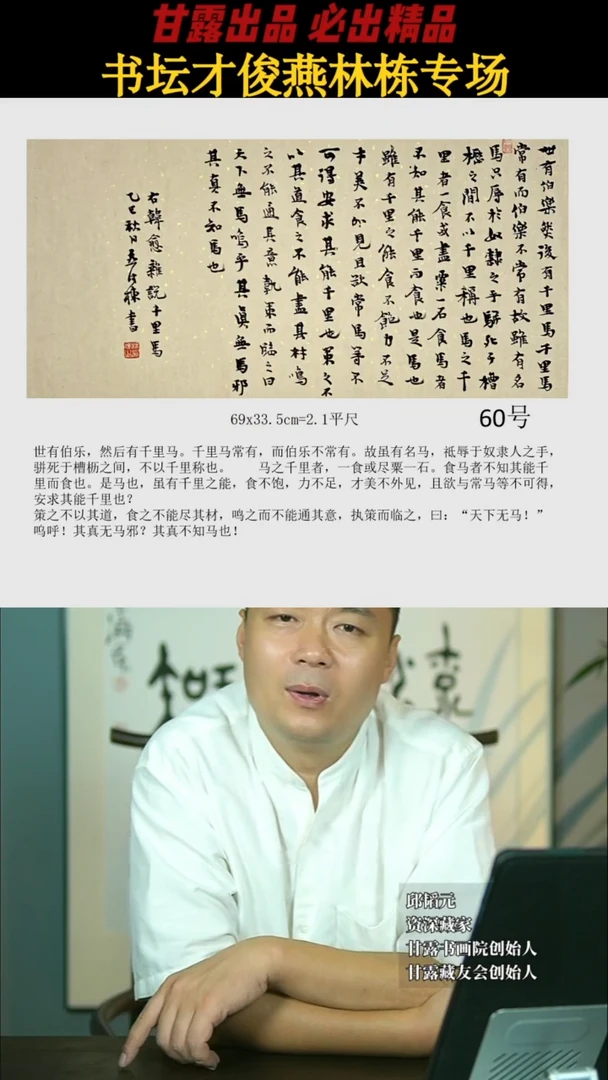 甘露出品 必出精品
书坛才俊燕林栋专场
世有伯樂然後有千里馬千里馬
常有而伯樂不常有故雖有名
馬只辱於奴隸之手駢死于槽
櫪之間不以千里稱也馬之千
里者一食或盡粟一石食馬者
不知其能千里而食也是馬也
雖有千里之能食不飽力不足
才美不外見且欲常馬等不
可得安求其能千里也策之不
以其道食之不能盡其材鳴
之不能通其意執策而臨之曰
天下無馬嗚乎其真無馬邪
其真不知馬也
右韓愈雜說千里馬
乙巳秋日書
69x33.5cm=2.1平尺
60号
世有伯乐，然后有千里马。千里马常有，而伯乐不常有。故虽有名马，祗辱于奴隶人之手，
骈死于槽枥之间，不以千里称也。 马之千里者，一食或尽粟一石。食马者不知其能千
里而食也。是马也，虽有千里之能，食不饱，力不足，才美不外见，且欲与常马等不可得，
安求其能千里也？
策之不以其道，食之不能尽其材，鸣之而不能通其意，执策而临之，曰：“天下无马！”
呜呼！其真无马邪？其真不知马也！
邱韬元
资深藏家
甘露书画院创始人
甘露藏友会创始人